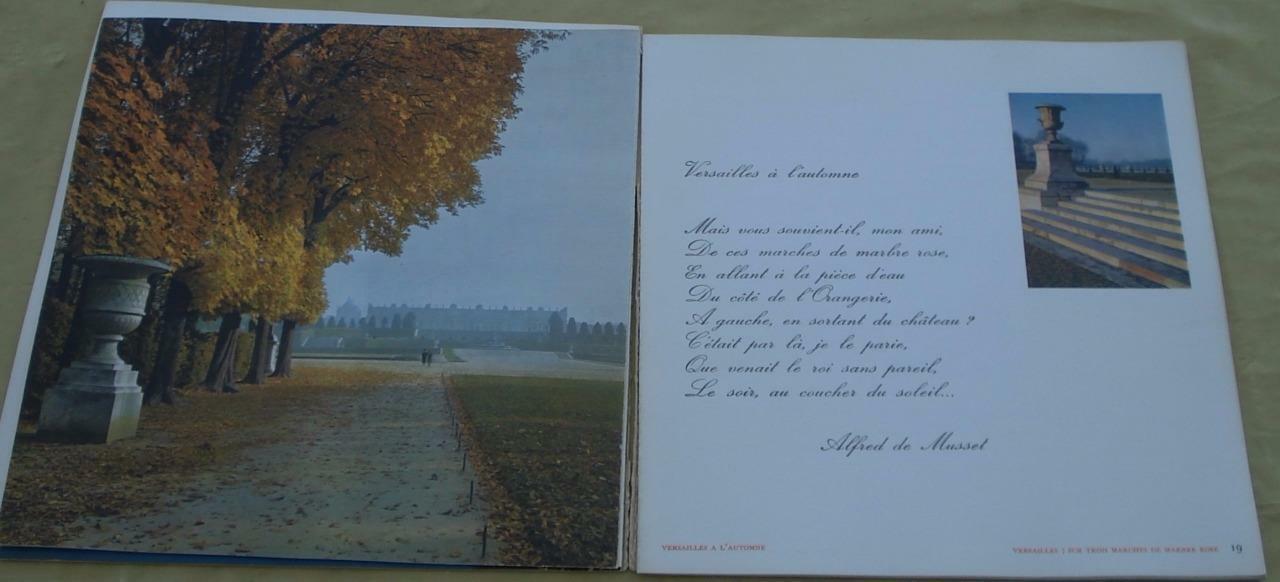 Versailles à l'automne
Mais vous souvient-il, mon ami,
De ces marches de marbre rose,
En allant à la pièce d'eau
Du côté de l'Orangerie,
A gauche, en sortant du château ?
C'était par là, je le parie,
Que venait le roi sans pareil,
Le soir, au coucher du soleil...
Alfred de Musset
VERSAILLES A L'AUTOMNE
VERSAILLES | SUR TROIS MARCHES DE MARBRE ROSE 19